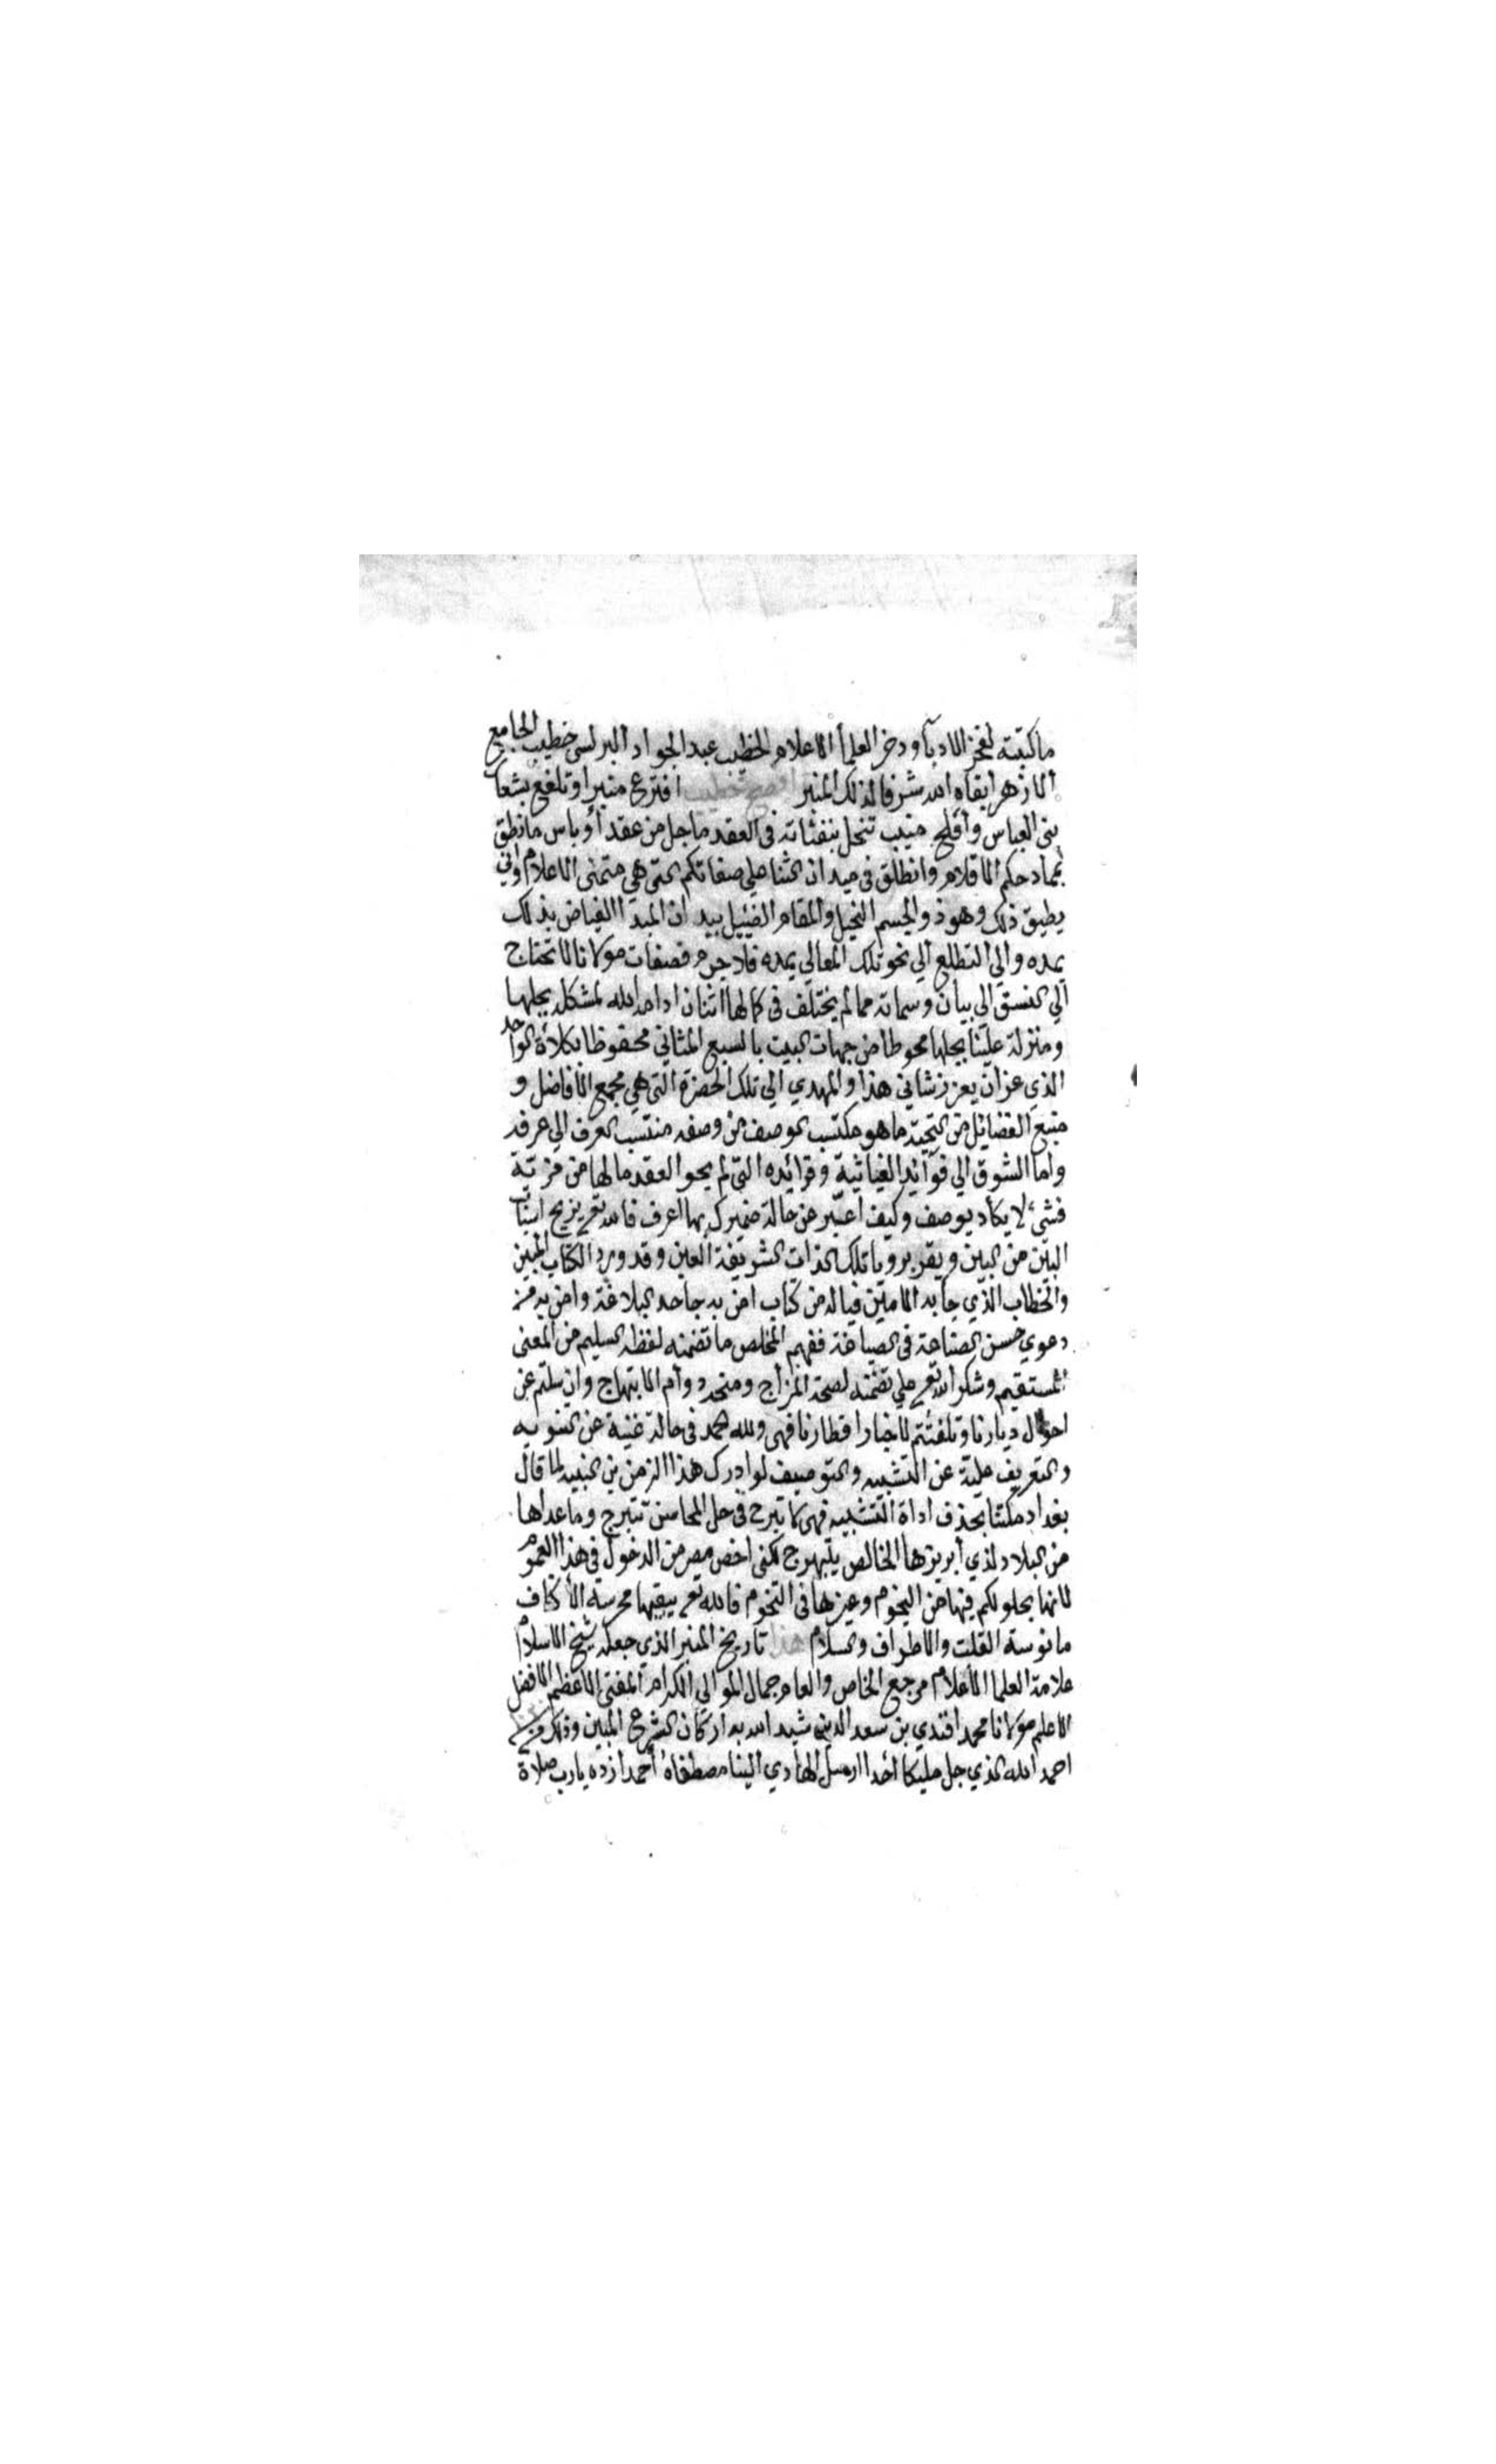 ما كتبته لفخر الادبآ وذخر العلمأ الاعلام الخطيب عبد الجواد البرلسى خطيب الجامع
الازهر ابقاه الله شرفا لذلك المنبر افصح خطيب افترع منبرا وتلفع بشعار
بنى العباس وأفلح منيب تنحل بنفثاته فى العقد ما جل من عقد أو باس ما نطق
بمحامدحكم الاقلام وانطلق فى ميدان الثنا على صفاتكم التى هي متمنى الاعلام وانى
يطيق ذلك وهو ذو الجسم النحيل والمقام الضئيل بيد ان المبدا الفياض بذلك
يمده والي التطلع الي نحو تلك المعالي يمده فلا جرم فصفات مولانا لا تحتاج
الي النسق الى بيان وسماته مما لم يختلف فى كمالها اثنان ادامه الله لمشكلة يجليها
ومنزلة علينا يحلها محوطا من جهات البيت بالسبع المثاني محفوظا بكلأة الواحد
الذي عز ان يعزز بثانى هذا والمهدي الي تلك الحضرة التى هي مجمع الافاضل و
منبع الفضائل من التحية ما هو مكتسب الوصف من وصفه منتسب العرف الي عرفه
واما الشوق الي فوآئده الغياثية وفرائده التى لم يحو العقد ما لها من مزية
فشئ لا يكاد يوصف وكيف اعبر عن حالة ضميرك بها اعرف فالله تعم يزيح اسباب
البين من البين ويقر برويا تلك الذات الشريفة العين وقد ورد الكتاب المبين
والخطاب الذي جا به الامين فياله من كتاب امن به جاحد البلاغة وامن به من
دعوي حسن الصناعة فى الصياغة ففهم المخلص ما تضمنه لفظه السليم من المعنى
المستقيم وشكر الله تعم علي تضمنه لصحة المزاج ومتجدد دوأم الابتهاج وان سالتم عن
احوال ديارنا وتلفتتم لاخبار اقطارنا فهى ولله الحمد فى حالة غنية عن التنويه
والتعريف علية عن التشبيه والتوصيف لو ادرك هذا الزمن بن النبيه لما قال
بغداد مكتنا بحذف اداة التشبيه فهى لا تبرح فى حلل المحاسن تتبرج وما عداها
من البلاد لذي أبريزها الخالص يتبهرج لكنى اخص مصر من الدخول فى هذا العموم
لانها بحلولكم فيها من النجوم وغيرها فى التخوم فالله تعم يبقيها محرسة الاكناف
مانوسة الفلت والاطراف والسلام هذا تاريخ المنبر الذي جعله شيخ الاسلام
علامة العلما الأعلام مرجع الخاص والعام جمال الموالي الكرام المفتى الاعظم الافضل
الاعلم مولانا محمد افندي بن سعد الدين شيد الله به اركان الشرع المبين وذلك
احمد الله الذي جل مليكا أحدا ارسل الهادي الينا مصطفاه أحمدا زده يارب صلاة